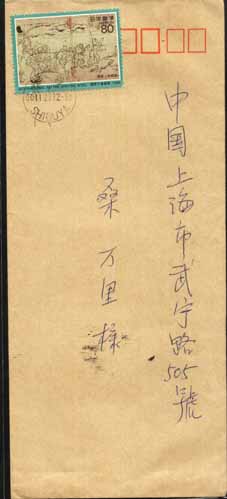 日本郵便
80
SHIBUYA
中国上海市武宁路505號
桑万里様